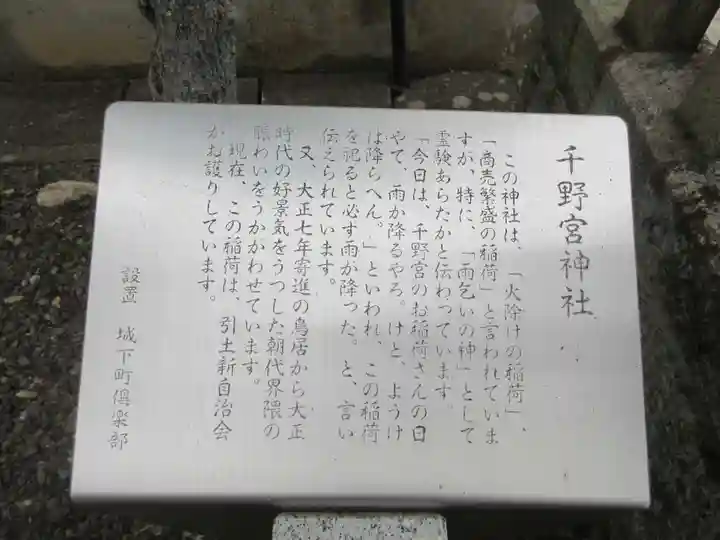 千野宮神社
この神社は、「火除けの稲荷」、
「商売繁盛の稲荷」と言われていま
すが、特に、「雨乞いの神」として
霊験あらたかと伝わっています。
「今日は、千野宮のお稲荷さんの日
やて、雨か降るやろ。けと、ようけ
は降らへん。」といわれ、この稲荷
を祀ると必す雨が降った。と、言い
伝えられています。
又、大正七年寄進の鳥居から大正
時代の好景気をうつした朝代界隈の
賑わいをうかかわせています。
現在、この稲荷は、引土新自治会
かお護りしています。
設置 城下町倶楽部